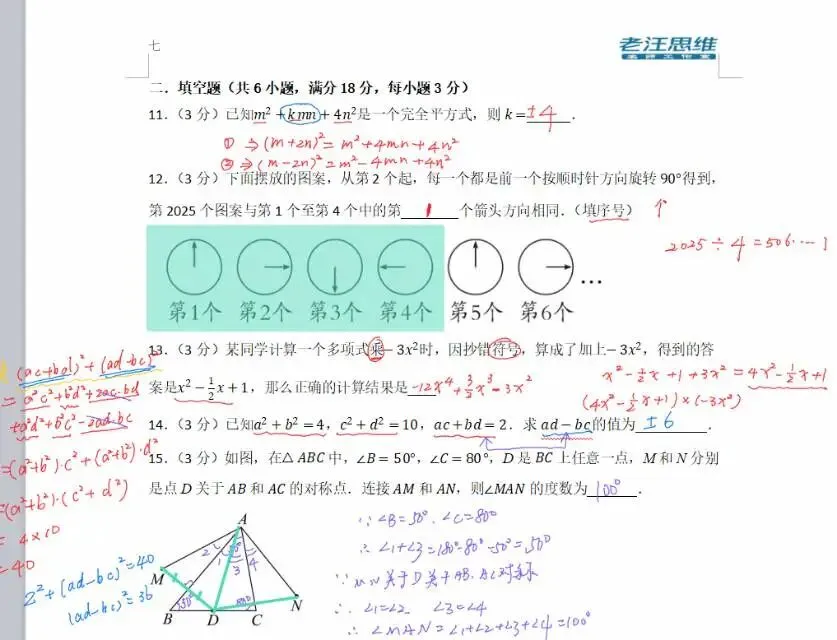 七
老汪思维
名师工作室
二．填空题（共 6 小题，满分 18 分，每小题 3 分）
11．（3 分）已知m² + kmn + 4n²是一个完全平方式，则 k = ±4 ．
① ⇒ (m+2n)² = m²+4mn+4n²
② ⇒ (m-2n)² = m²-4mn+4n²
12．（3 分）下面摆放的图案，从第 2 个起，每一个都是前一个按顺时针方向旋转 90°得到，
第 2025 个图案与第 1 个至第 4 个中的第 1 个箭头方向相同．（填序号） ↑
2025÷4=506……1
第1个 第2个 第3个 第4个 第5个 第6个 …
13．（3 分）某同学计算一个多项式乘－3x²时，因抄错符号，算成了加上－3x²，得到的答
案是x²－½x＋1，那么正确的计算结果是 -12x⁴+3/2x³-3x² ．
x²-½x+1+3x²=4x²-½x+1
(4x²-½x+1)×(-3x²)
14．（3 分）已知a² + b² = 4，c² + d² = 10，ac + bd = 2．求 ad－bc的值为 ±6 ．
15．（3 分）如图，在△ ABC 中，∠B = 50°，∠C = 80°，D 是 BC 上任意一点，M 和 N 分别
是点 D 关于 AB 和 AC 的对称点．连接 AM 和 AN，则∠MAN 的度数为 100° ．
(ac+bd)²+(ad-bc)²
=a²c²+b²d²+2ac·bd
+a²d²+b²c²-2ad·bc
=(a²+b²)·c²+(a²+b²)·d²
=(a²+b²)·(c²+d²)
=4×10
=40
2²+(ad-bc)²=40
(ad-bc)²=36
A
2 1 3 4
M
50°
B D C N
∵ ∠B=50°. ∠C=80°
∴ ∠1+∠3=180°-80°-50°=50°
∵ M N 关于 D 关于 AB. AC 对称
∴ ∠1=∠2 ∠3=∠4
∴ ∠MAN=∠1+∠2+∠3+∠4=100°